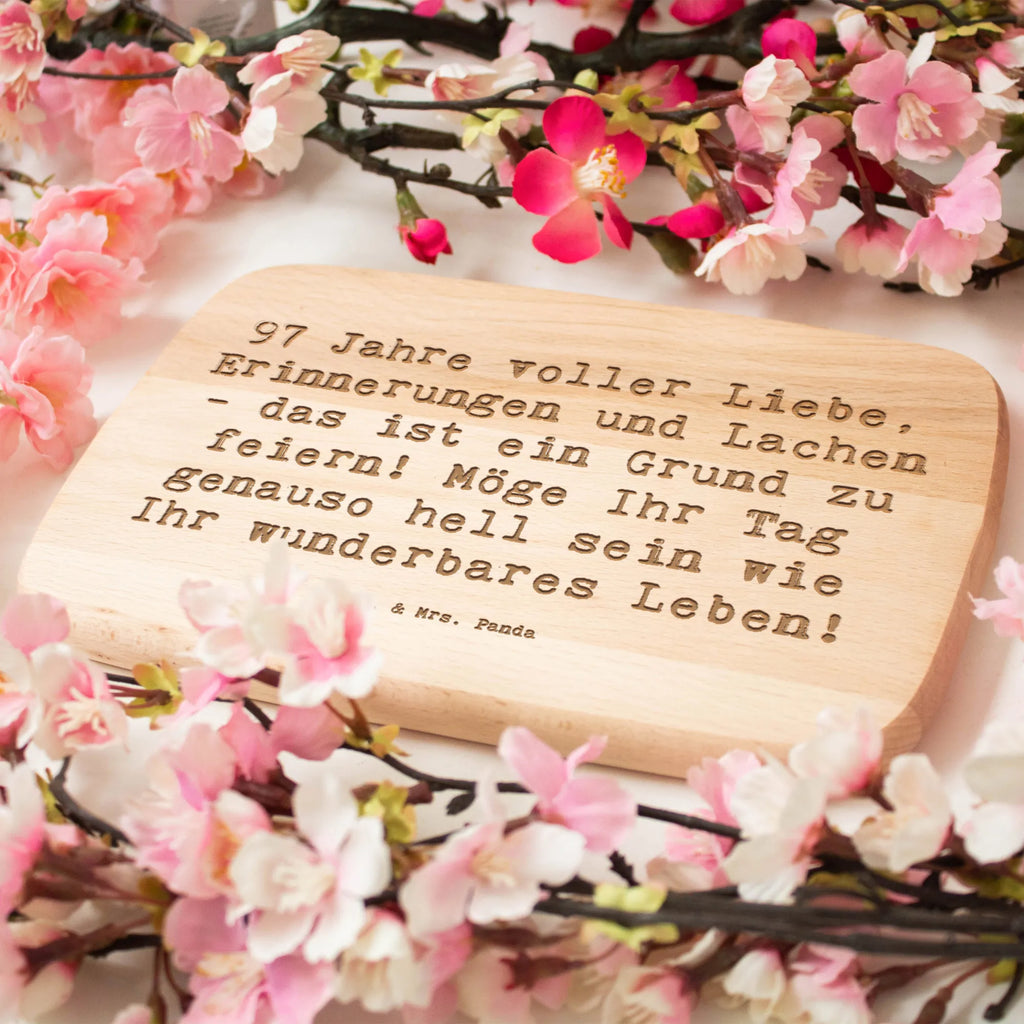 97 Jahre voller Liebe,
Erinnerungen und Lachen
- das ist ein Grund zu
feiern! Möge Ihr Tag
genauso hell sein wie
Ihr wunderbares Leben!
& Mrs. Panda